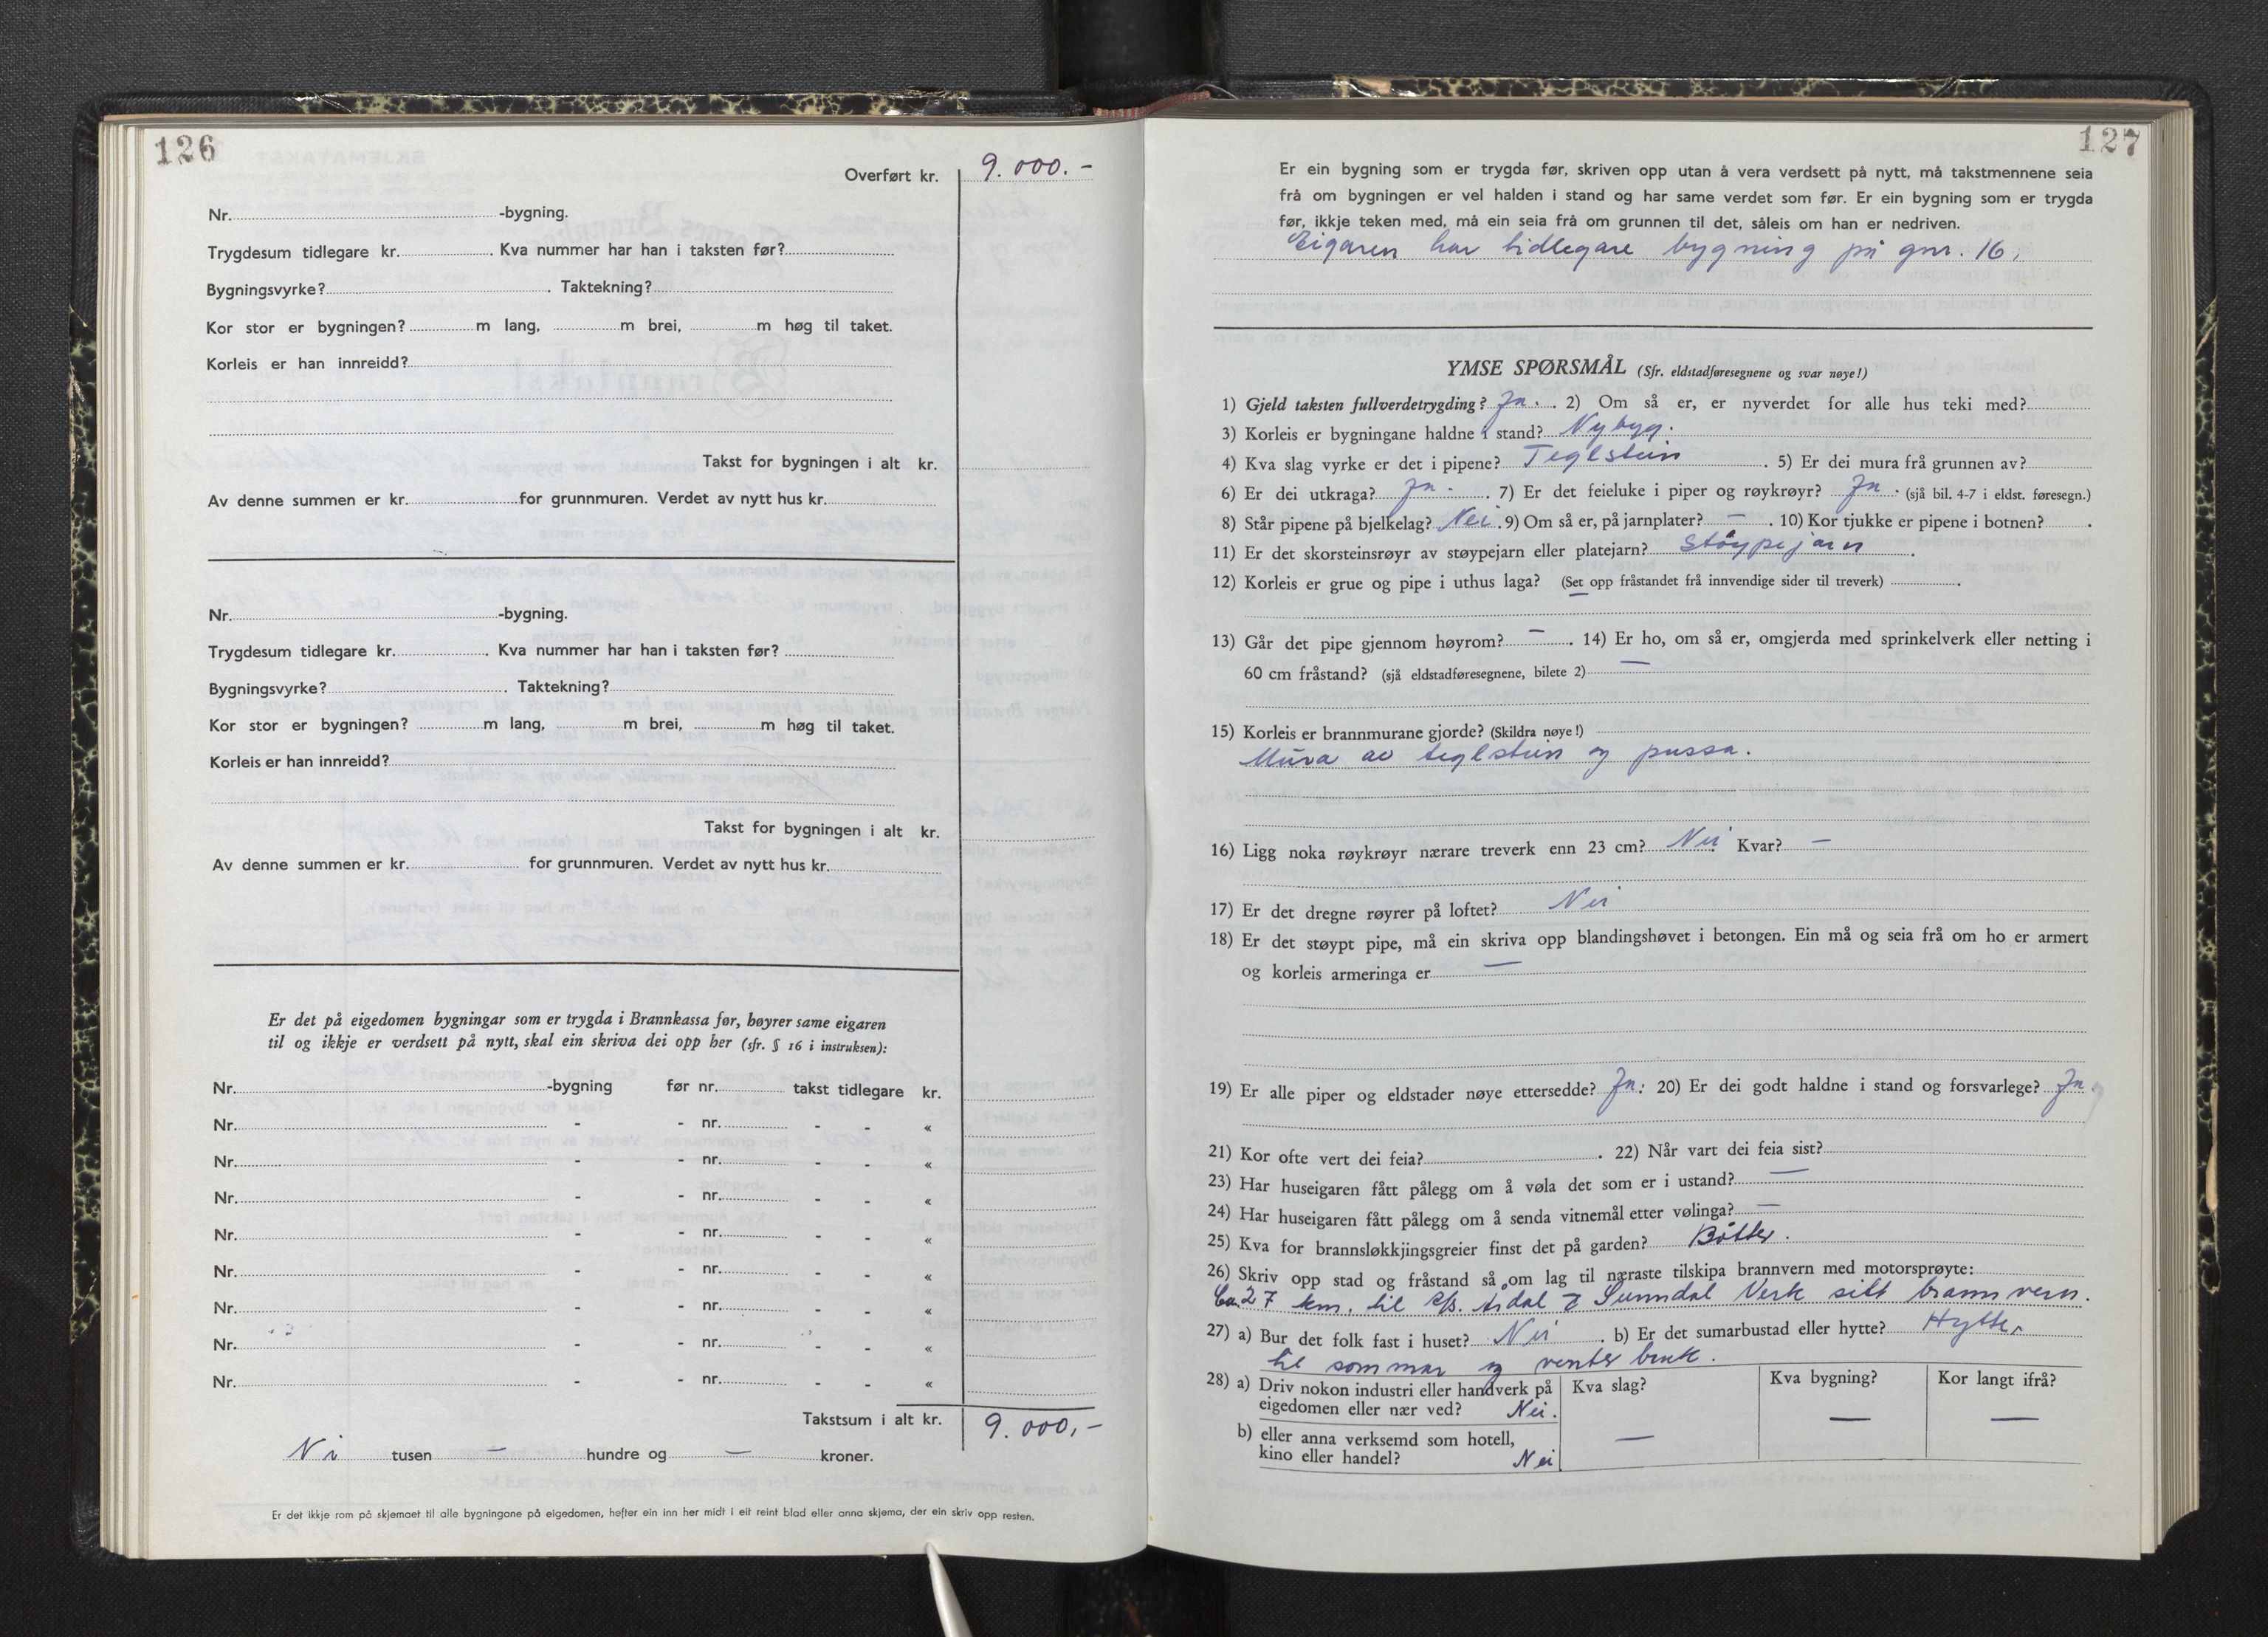 126
Overført kr. 9.000.-
Nr. -bygning.
Trygdesum tidlegare kr. . Kva nummer har han i taksten før?
Bygningsvyrke? . Taktekning?
Kor stor er bygningen? m lang, m brei, m høg til taket.
Korleis er han innreidd?
Takst for bygningen i alt kr.
Av denne summen er kr. for grunnmuren. Verdet av nytt hus kr.
Nr. -bygning.
Trygdesum tidlegare kr. . Kva nummer har han i taksten før?
Bygningsvyrke? . Taktekning?
Kor stor er bygningen? m lang, m brei, m høg til taket.
Korleis er han innreidd?
Takst for bygningen i alt kr.
Av denne summen er kr. for grunnmuren. Verdet av nytt hus kr.
Er det på eigedomen bygningar som er trygda i Brannkassa før, høyrer same eigaren
til og ikkje er verdsett på nytt, skal ein skriva dei opp her (sfr. § 16 i instruksen):
Nr. -bygning før nr. takst tidlegare kr.
Nr. - - nr. - - «
Nr. - - nr. - - «
Nr. - - nr. - - «
Nr. - - nr. - - «
Nr. - - nr. - - «
Nr. - - nr. - - «
Nr. - - nr. - - «
Nr. - - nr. - - «
Takstsum i alt kr. 9.000,-
Ni tusen — hundre og — kroner.
Er det ikkje rom på skjemaet til alle bygningane på eigedomen, hefter ein inn her midt i eit reint blad eller anna skjema, der ein skriv opp resten.
127
Er ein bygning som er trygda før, skriven opp utan å vera verdsett på nytt, må takstmennene seia
frå om bygningen er vel halden i stand og har same verdet som før. Er ein bygning som er trygda
før, ikkje teken med, må ein seia frå om grunnen til det, såleis om han er nedriven.
Eigaren har tidlegare bygning på gnr. 16,
YMSE SPØRSMÅL (Sfr. eldstadføresegnene og svar nøye!)
1) Gjeld taksten fullverdetrygding? Ja. . 2) Om så er, er nyverdet for alle hus teki med?
3) Korleis er bygningane haldne i stand? Nybyg.
4) Kva slag vyrke er det i pipene? Teglstein . 5) Er dei mura frå grunnen av?
6) Er dei utkraga? Ja. . 7) Er det feieluke i piper og røykrøyr? Ja. (sjå bil. 4-7 i eldst. føresegn.)
8) Står pipene på bjelkelag? Nei. 9) Om så er, på jarnplater? — . 10) Kor tjukke er pipene i botnen? .
11) Er det skorsteinsrøyr av støypejarn eller platejarn? Støypejarn .
12) Korleis er grue og pipe i uthus laga? (Set opp fråstandet frå innvendige sider til treverk) .
—
13) Går det pipe gjennom høyrom? — . 14) Er ho, om så er, omgjerda med sprinkelverk eller netting i
60 cm fråstand? (sjå eldstadføresegnene, bilete 2) —
15) Korleis er brannmurane gjorde? (Skildra nøye!)
Mura av teglstein og pussa.
16) Ligg noka røykrøyr nærare treverk enn 23 cm? Nei Kvar? —
17) Er det dregne røyrer på loftet? Nei
18) Er det støypt pipe, må ein skriva opp blandingshøvet i betongen. Ein må og seia frå om ho er armert
og korleis armeringa er —
19) Er alle piper og eldstader nøye ettersedde? Ja. 20) Er dei godt haldne i stand og forsvarlege? Ja.
21) Kor ofte vert dei feia? . 22) Når vart dei feia sist?
23) Har huseigaren fått pålegg om å vøla det som er i ustand? —
24) Har huseigaren fått pålegg om å senda vitnemål etter vølinga? —
25) Kva for brannsløkkjingsgreier finst det på garden? Bøtter.
26) Skriv opp stad og fråstand så om lag til næraste tilskipa brannvern med motorsprøyte:
Ca. 27 km. til A/S. Årdal & Sunndal Verk sitt brannvern.
27) a) Bur det folk fast i huset? Nei . b) Er det sumarbustad eller hytte? Hytte,
til sommar og venter bruk.
28) a) Driv nokon industri eller handverk på eigedomen eller nær ved? Nei. Kva slag? Kva bygning? — Kor langt ifrå? —
b) eller anna verksemd som hotell, kino eller handel? Nei —